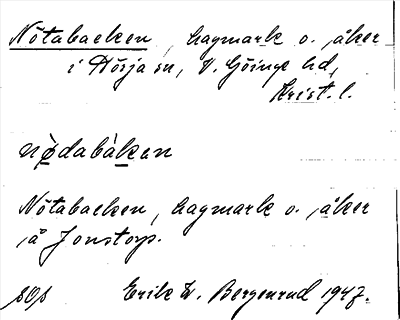 Nötabacken, hagmark o. åker
i Hörja sn, V. Göinge hd,
Krist. l.
nø̀dabàkan
Nötabacken, hagmark o. åker
å Jonstorp.
Erik W. Bergenrud 1947.